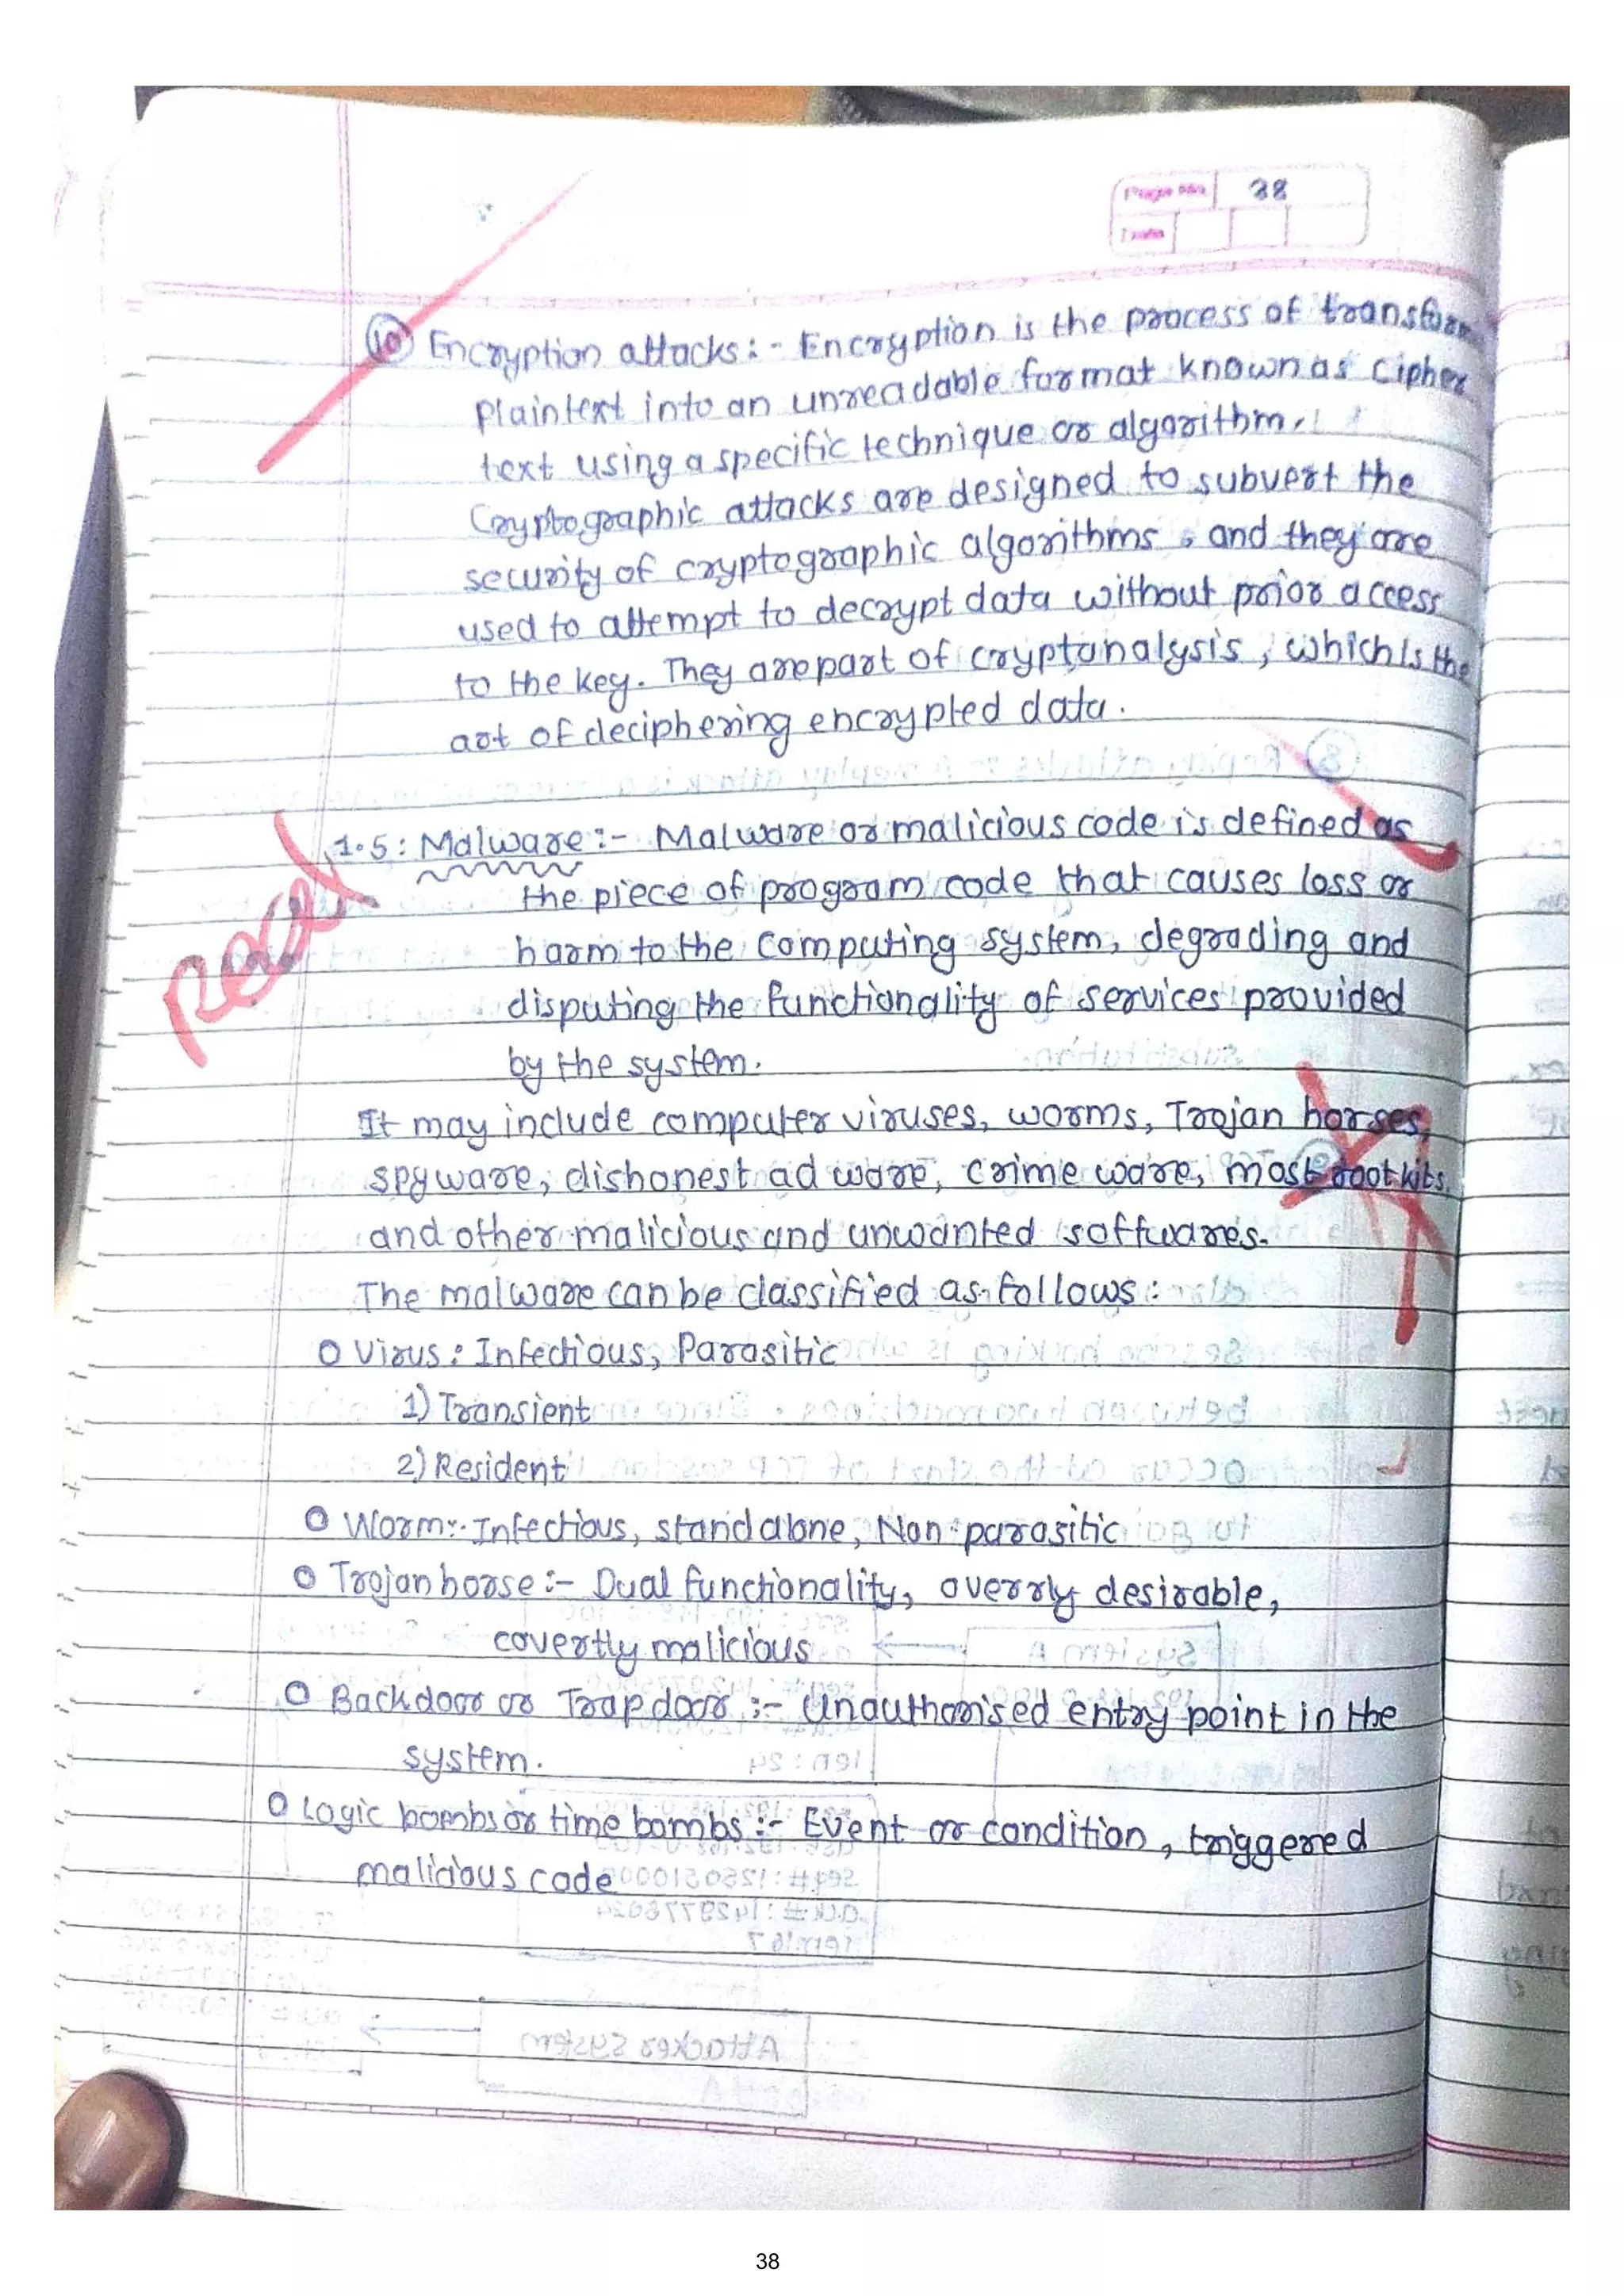 Page No. 38
Date
10 Encryption attacks :- Encryption is the process of transform
plaintext into an unreadable format known as cipher
text using a specific technique or algorithm.
Cryptographic attacks are designed to subvert the
security of cryptographic algorithms, and they are
used to attempt to decrypt data without prior access
to the key. They are part of cryptanalysis, which is the
art of deciphering encrypted data.
1.5 : Malware :- Malware or malicious code is defined as
the piece of program code that causes loss or
harm to the computing system, degrading and
disputing the functionality of services provided
by the system.
It may include computer viruses, worms, Trojan horses,
spyware, dishonest ad ware, crime ware, most rootkits
and other malicious and unwanted softwares.
The malware can be classified as follows :
o Virus : Infectious, Parasitic
1) Transient
2) Resident
o Worm :- Infectious, stand alone, Non-parasitic
o Trojan horse :- Dual functionality, overrly desirable,
covertly malicious
o Backdoor or Trap door :- Unauthorised entry point in the
system.
o Logic bombs or time bombs :- Event or condition, triggered
malicious code
38